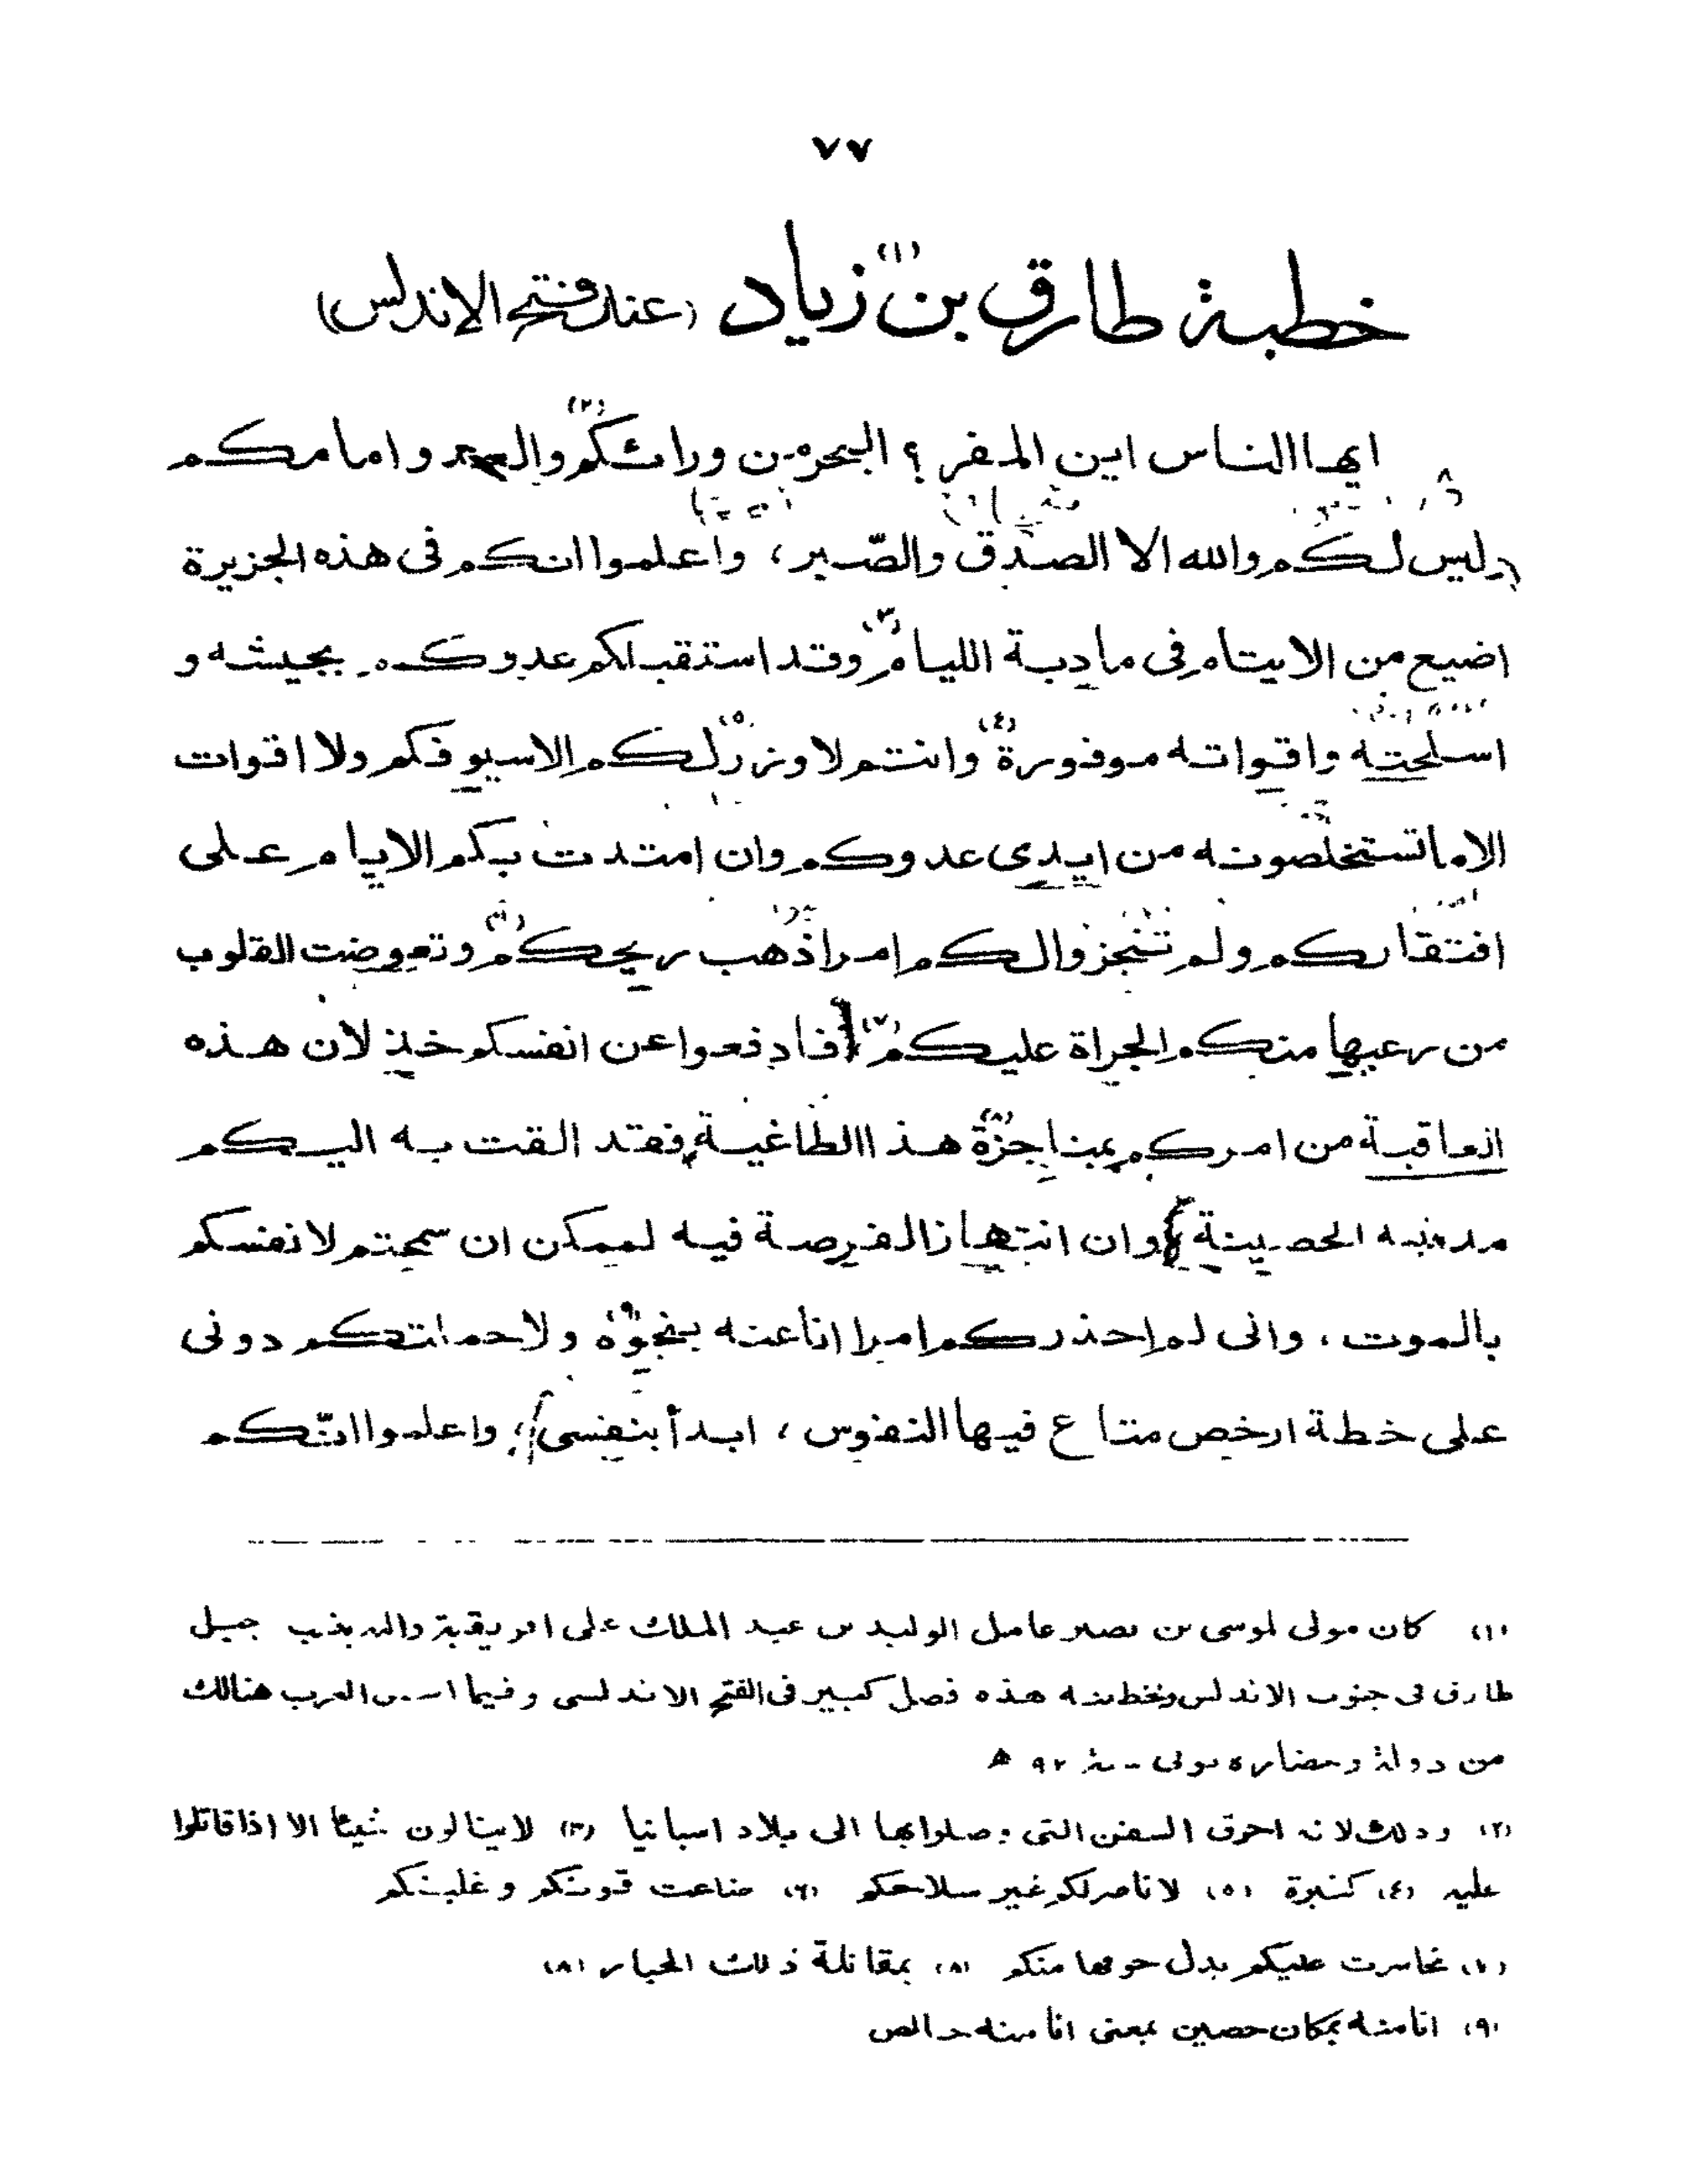 ٧٧
خطبة طارق بن زياد (١) (عند فتح الاندلس)
ايها الناس اين المفر ؟ البحر من ورائكم (٢) والعدو امامكم
وليس لكم والله الا الصدق والصّبر ، واعلموا انكم فى هذه الجزيرة
اضيع من الايتام فى مادبة الليام (٣) وقد استقبلكم عدوكم بجيشه و
اسلحته واقواته موفورة (٤) وانتم لا وزر (٥) لكم الاسيوفكم ولا اقوات
الا ما تستخلصونه من ايدى عدوكم وان امتدت بكم الايام على
افتقاركم ولم تنجزوا لكم امرا ذهب ريحكم (٦) وتعوضت القلوب
من رعبها منكم الجراة عليكم (٧) فادفعوا عن انفسكم خذلان هذه
العاقبة من امركم بمناجزة (٨) هذا الطاغية فقد القت به اليكم
مدينته الحصينة وان انتهاز الفرصة فيه لممكن ان سمحتم لانفسكم
بالموت ، وانى لم احذركم امرا انا عنه بنجوة (٩) ولا حملتكم دونى
على خطة ارخص متاع فيها النفوس ، ابدأ بنفسى ، واعلموا انّكم
(١) كان مولى لموسى بن نصير عامل الوليد بن عبد الملك على افريقية واليه ينسب جبل
طارق فى جنوب الاندلس ولخطبته هذه فصل كبير فى الفتح الاندلسى وفيما اسس العرب هنالك
من دولة وحضارة توفى سنة ٩٢ ه
(٢) وذلك لانه احرق السفن التى وصلوا بها الى بلاد اسبانيا (٣) لا ينالون شيئا الا اذا قاتلوا
عليه (٤) كثيرة (٥) لا ناصر لكم غير سلاحكم (٦) ضاعت قوتكم وغلبتكم
(٧) تجاسرت عليكم بدل خوفها منكم (٨) بمقاتلة ذلك الجبار (٨)
(٩) انا منه بمكان حصين بمعنى انا منه خالص